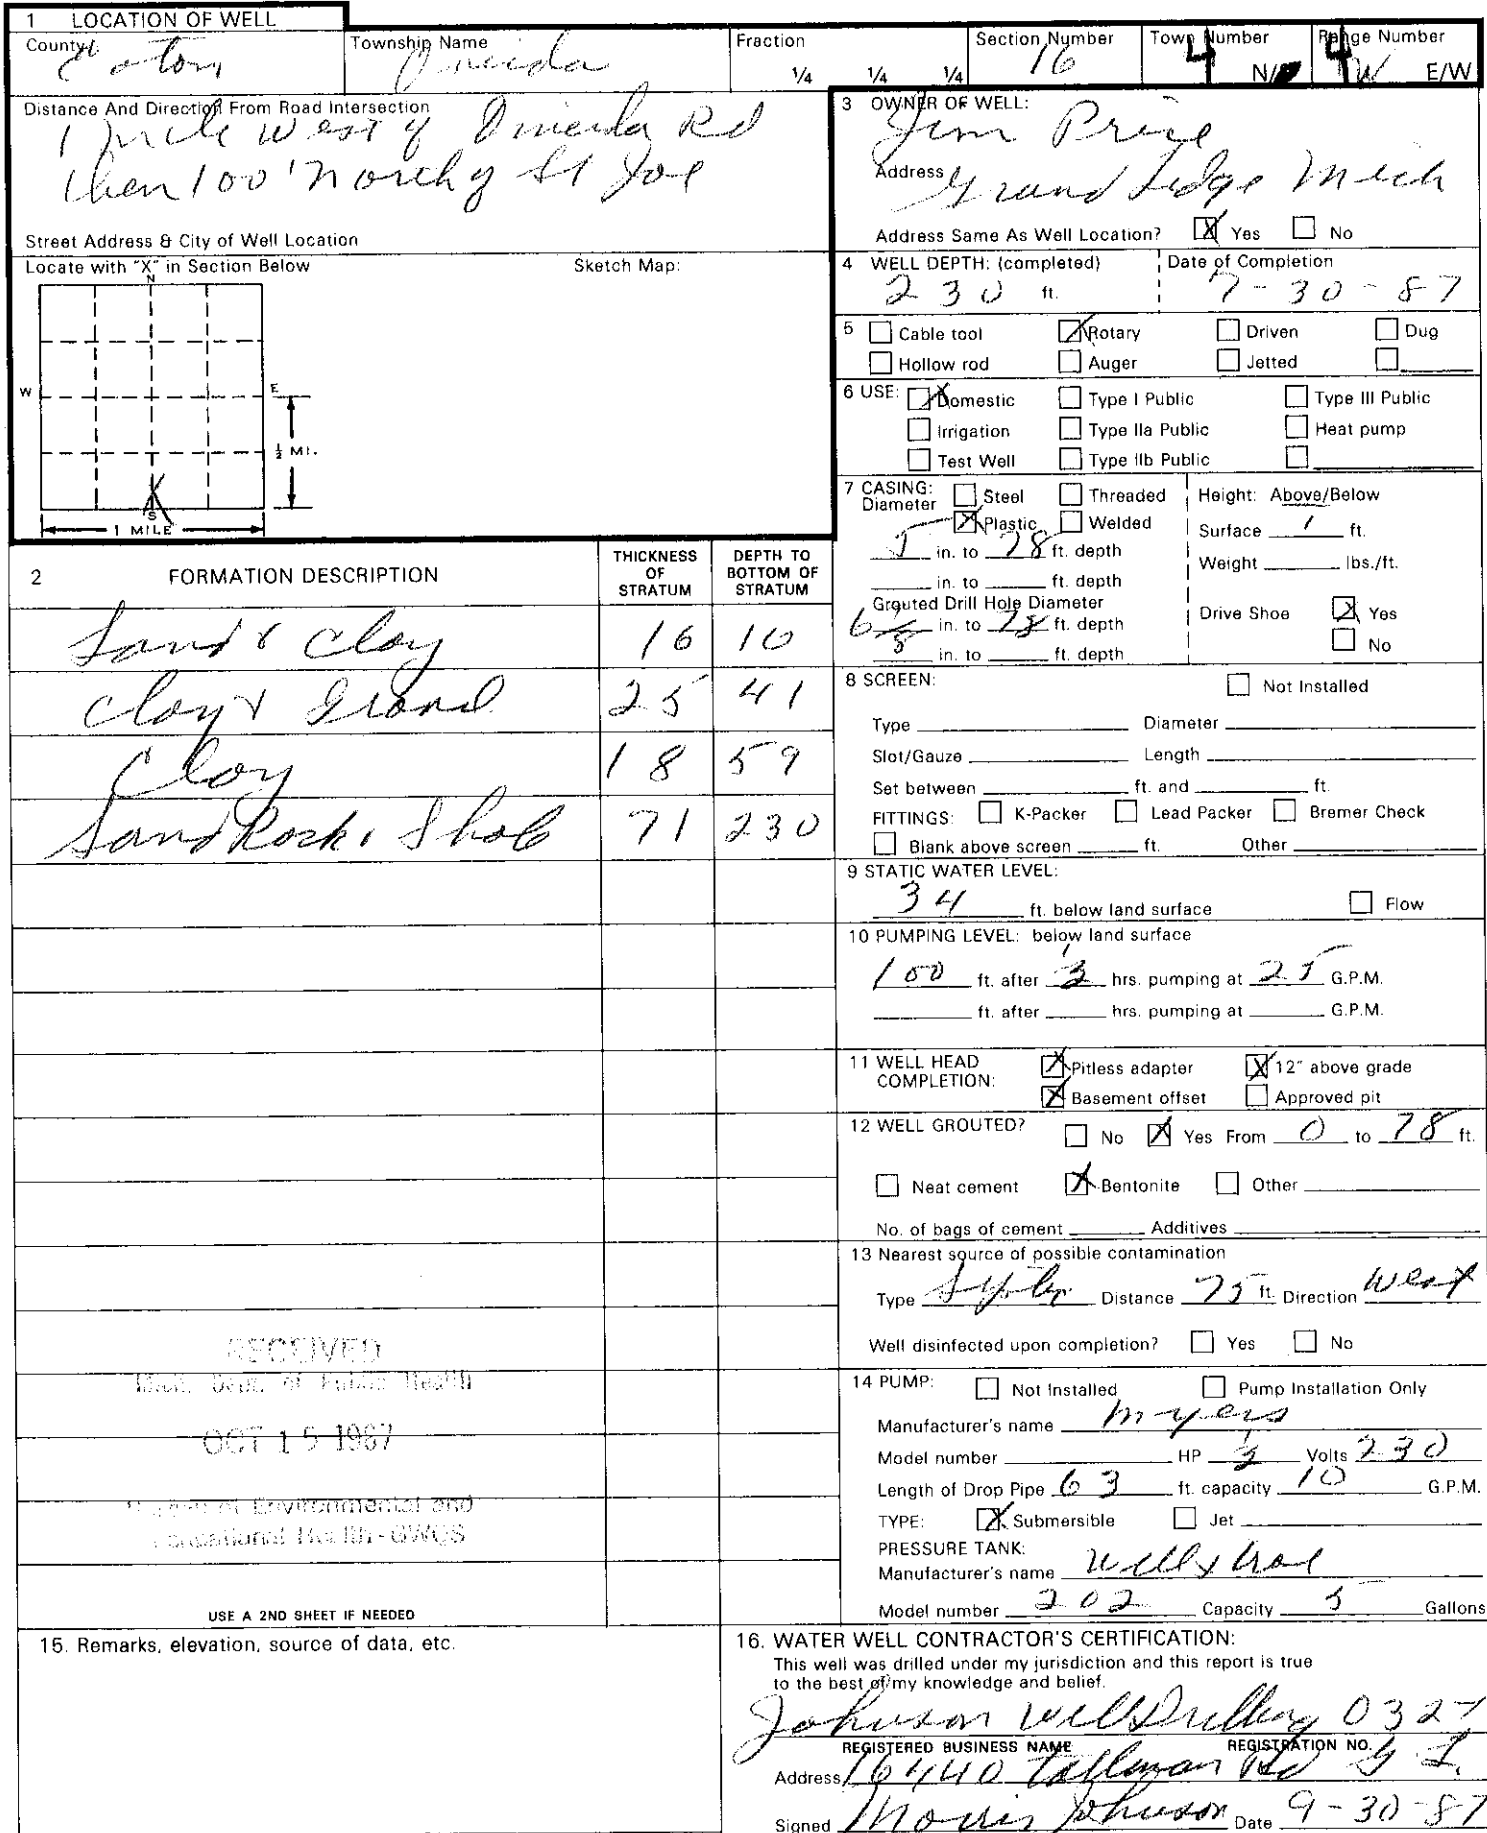 1 LOCATION OF WELL
County Eaton
Township Name Oneida
Fraction 1/4 1/4 1/4
Section Number 16
Town Number 4 N/
Range Number 4 W E/W
Distance And Direction From Road Intersection
1 mile West of Oneida Rd
then 100' North of St Joe
Street Address & City of Well Location
Locate with "X" in Section Below
Sketch Map:
N
W E
1/2 MI.
X
S
1 MILE
3 OWNER OF WELL:
Jim Price
Address Grand Ledge Mich
Address Same As Well Location? X Yes No
4 WELL DEPTH: (completed) Date of Completion
230 ft. 7-30-87
5 Cable tool X Rotary Driven Dug
Hollow rod Auger Jetted
6 USE: X Domestic Type I Public Type III Public
Irrigation Type IIa Public Heat pump
Test Well Type IIb Public
7 CASING: Steel Threaded Height: Above/Below
Diameter X Plastic Welded
Surface 1 ft.
5 in. to 78 ft. depth
Weight lbs./ft.
in. to ft. depth
Grouted Drill Hole Diameter
in. to 78 ft. depth
Drive Shoe X Yes
No
in. to ft. depth
2 FORMATION DESCRIPTION
THICKNESS OF STRATUM
DEPTH TO BOTTOM OF STRATUM
Sand & Clay 16 16
Clay & Gravel 25 41
Clay 18 59
Sand Rock & Shale 71 230
8 SCREEN: Not Installed
Type Diameter
Slot/Gauze Length
Set between ft. and ft.
FITTINGS: K-Packer Lead Packer Bremer Check
Blank above screen ft. Other
9 STATIC WATER LEVEL:
34 ft. below land surface Flow
10 PUMPING LEVEL: below land surface
100 ft. after 1/2 hrs. pumping at 25 G.P.M.
ft. after hrs. pumping at G.P.M.
11 WELL HEAD COMPLETION:
X Pitless adapter X 12" above grade
X Basement offset Approved pit
12 WELL GROUTED? No X Yes From 0 to 78 ft.
Neat cement X Bentonite Other
No. of bags of cement Additives
13 Nearest source of possible contamination
Type Septic Distance 75 ft. Direction West
Well disinfected upon completion? Yes No
14 PUMP: Not Installed Pump Installation Only
Manufacturer's name Myers
Model number HP 1/2 Volts 230
Length of Drop Pipe 63 ft. capacity 10 G.P.M.
TYPE: X Submersible Jet
PRESSURE TANK:
Manufacturer's name Well x trol
Model number 202 Capacity 5 Gallons
RECEIVED
Mich. Dept. of Public Health
OCT 15 1987
of Environmental and
Occupational Health-GWQS
USE A 2ND SHEET IF NEEDED
15. Remarks, elevation, source of data, etc.
16. WATER WELL CONTRACTOR'S CERTIFICATION:
This well was drilled under my jurisdiction and this report is true
to the best of my knowledge and belief.
Johnson Well Drilling 0327
REGISTERED BUSINESS NAME REGISTRATION NO.
Address 16440 Tallman Rd G L.
Signed Morris Johnson Date 9-30-87